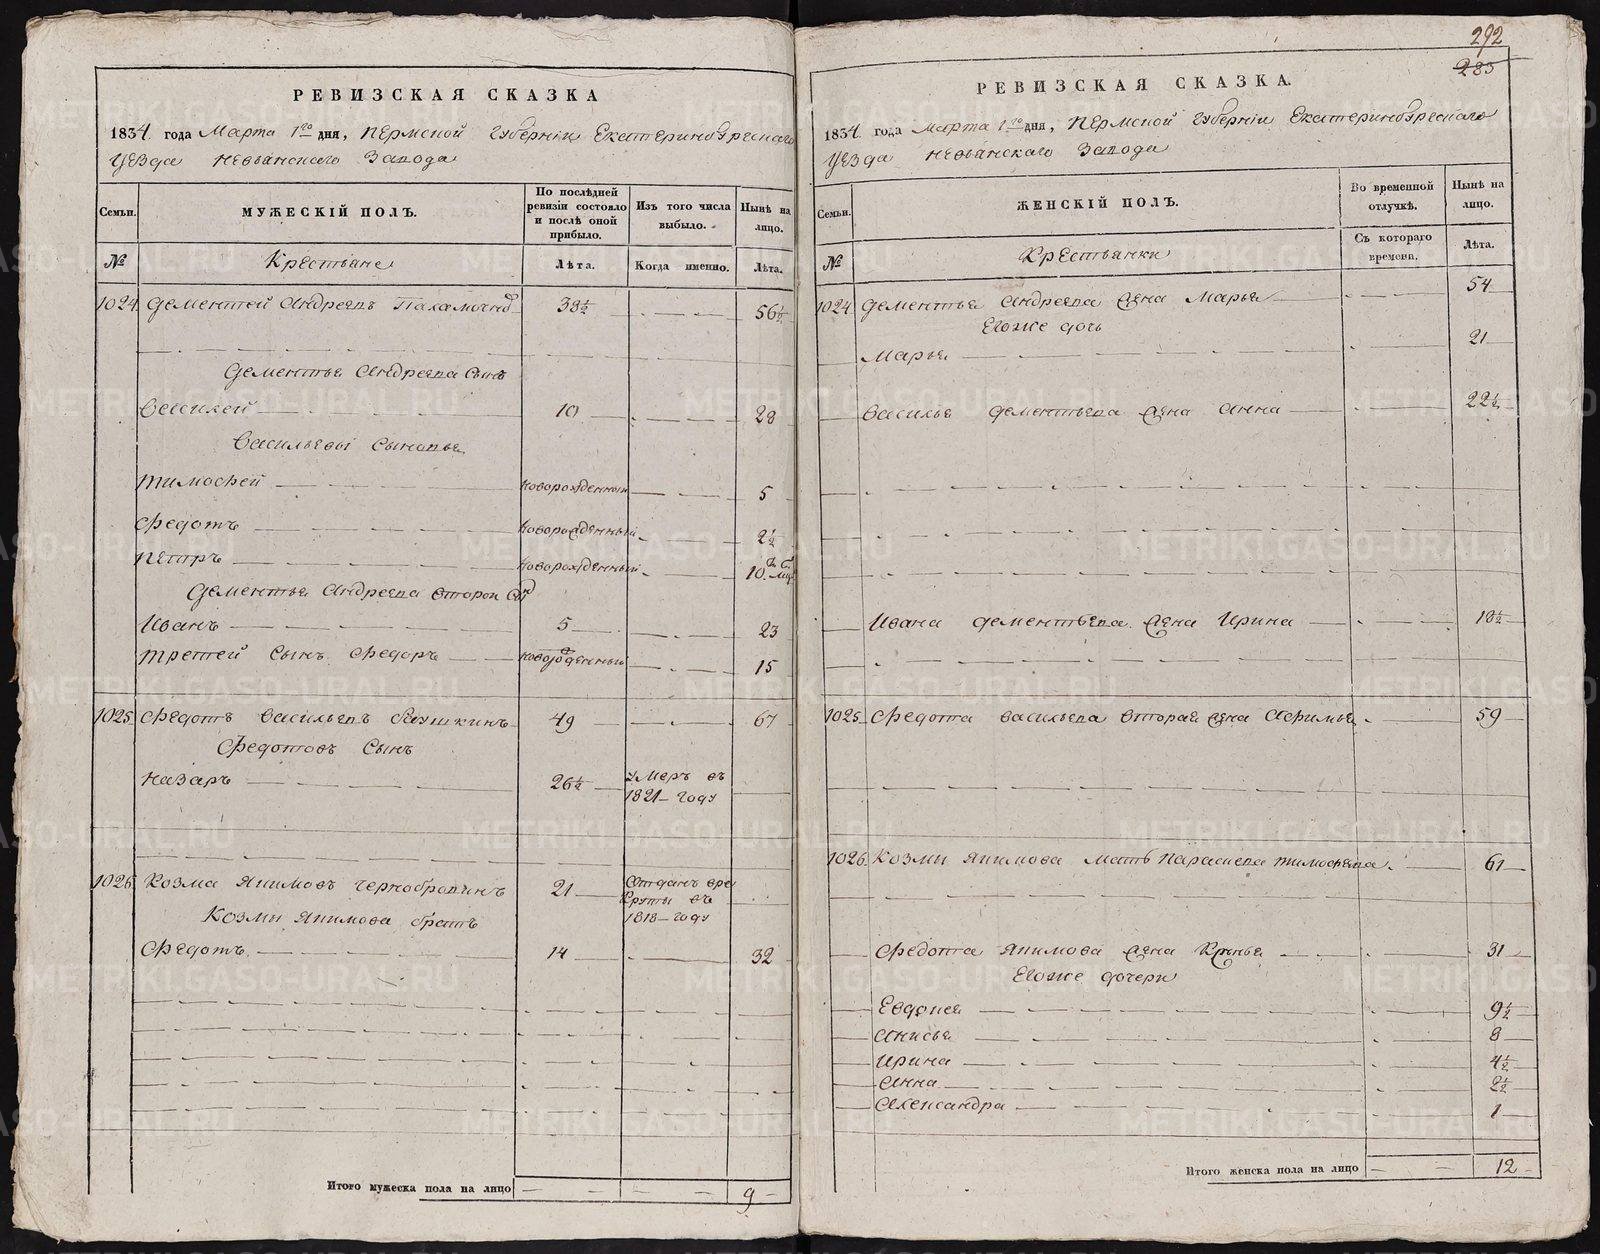 РЕВИЗСКАЯ СКАЗКА
1834 года Марта 1го дня, Пермской Губернiи Екатеринбургскаго
Уезда Невьянскаго Завода
Семьи.
МУЖЕСКІЙ ПОЛЪ.
По послѣдней ревизіи состояло и послѣ оной прибыло.
Изъ того числа выбыло.
Нынѣ на лицо.
№
Крестьяне
Лѣта.
Когда именно.
Лѣта.
1024 Дементей Андреевъ 38½ 56½
Дементья Андреева сынъ
Василей 10 28
Васильевы сыновья
Тимофей новорожденный 5
Федотъ новорожденный 2½
Петръ новорожденный 10
Дементья Андреева второй сынъ
Иванъ 5 23
третей сынъ Федоръ новорожденный 15
1025 Федотъ Васильевъ 49 67
Федотовъ сынъ
Назаръ 26½ умеръ въ 1821 году
1026 Козма Якимовъ Чернобровинъ 21 Отданъ вре
круты въ
1818 году
Козмы Якимова братъ
Федотъ 14 32
Итого мужеска пола на лицо 9
292
285
РЕВИЗСКАЯ СКАЗКА.
1834 года Марта 1го дня, Пермской Губернiи Екатеринбургскаго
Уезда Невьянскаго Завода
Семьи.
ЖЕНСКІЙ ПОЛЪ.
Во временной отлучкѣ.
Нынѣ на лицо.
№
Крестьянки
Съ котораго времени.
Лѣта.
1024 Дементья Андреева жена Марья 54
Его же дочь
Марья 21
Василья Дементьева жена Анна 22½
Ивана Дементьева жена Ирина 18½
1025 Федота Васильева вторая жена Афимья 59
1026 Козмы Якимова мать Парасковья Тимофеева 61
Федота Якимова жена 31
Его же дочери
Евдокея 9½
Анисья 8
Ирина 4½
Анна 2½
Александра 1
Итого женска пола на лицо 12
METRIKI.GASO-URAL.RU